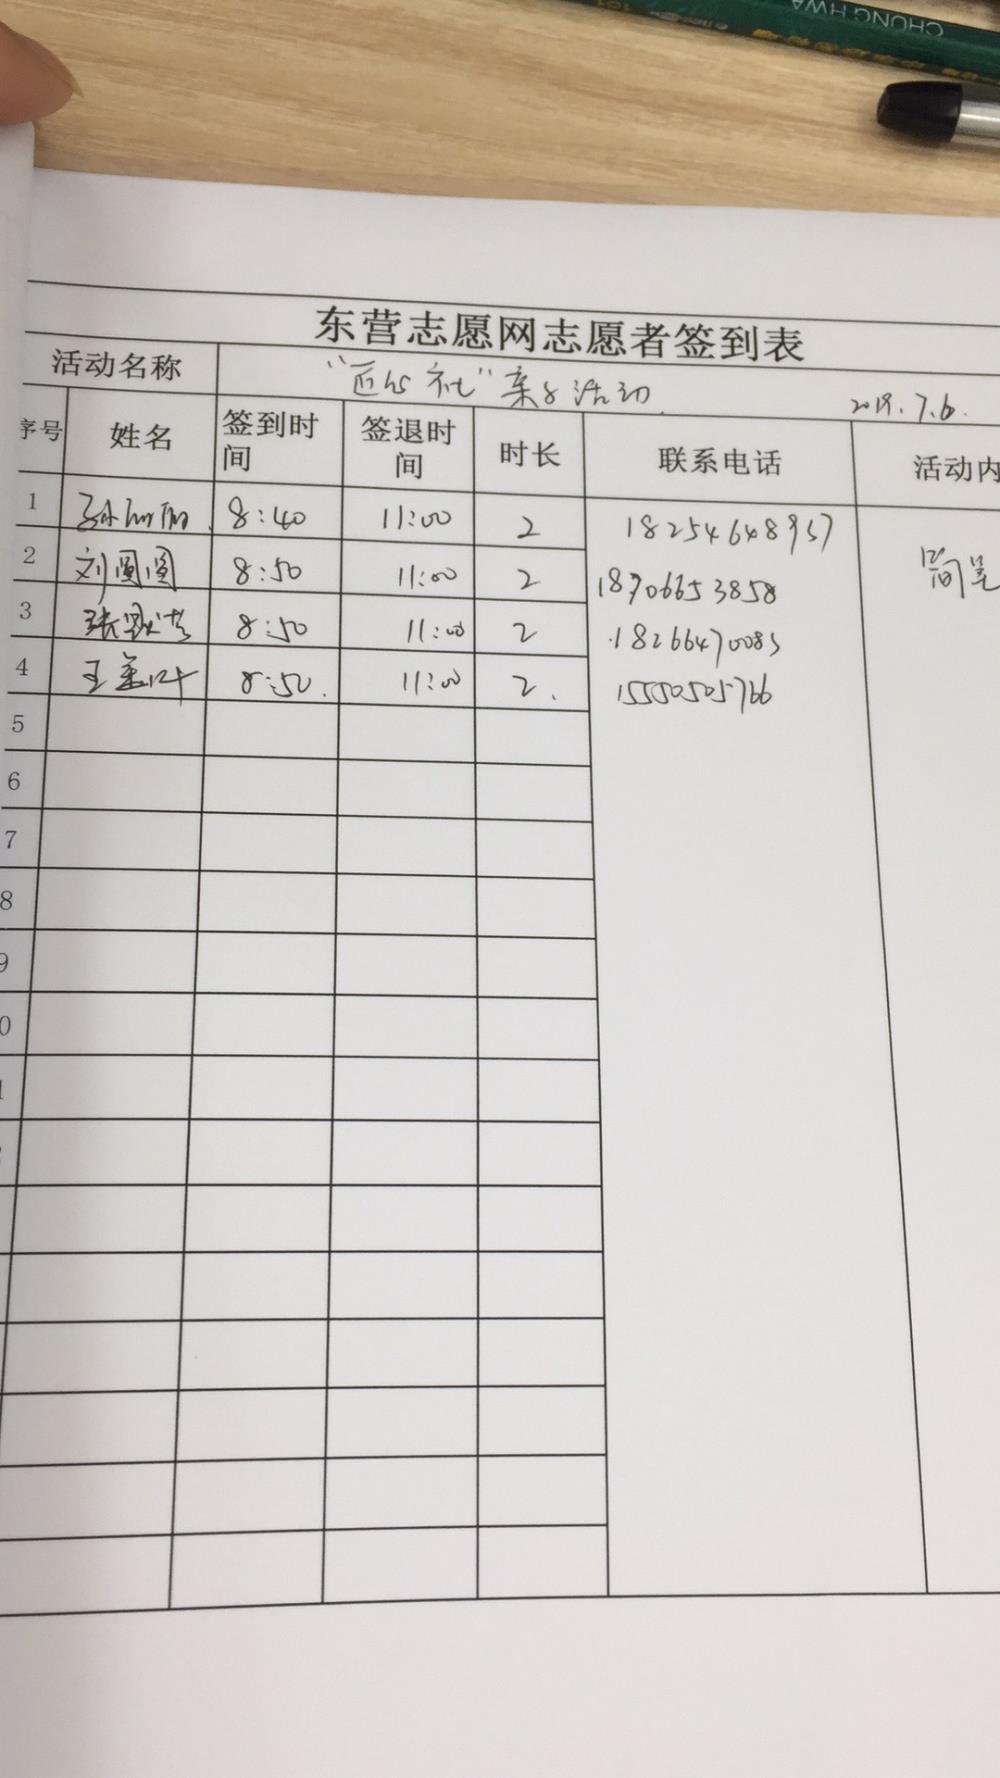 CHUNG HWA
101
东营志愿网志愿者签到表
活动名称 "匠心社"亲子活动 2019.7.6.
序号 姓名 签到时间 签退时间 时长 联系电话 活动内
1 8:40 11:00 2 18254648957
2 刘圆圆 8:50 11:00 2 18706653858
3 8:50 11:00 2 18266470083
4 王 8:50. 11:00 2. 15550505766
5
6
7
8
9
0
1